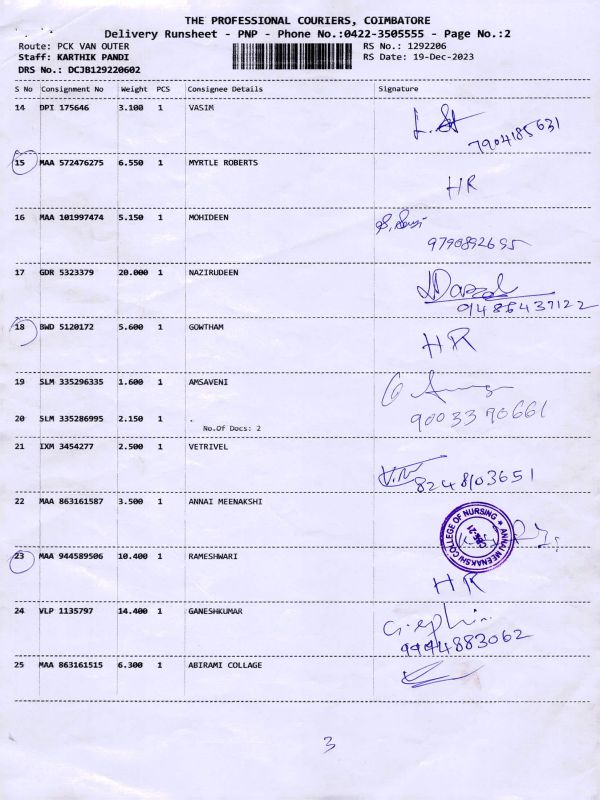 THE PROFESSIONAL COURIERS, COIMBATORE
Delivery Runsheet - PNP - Phone No.:0422-3505555 - Page No.:2
Route: PCK VAN OUTER RS No.: 1292206
Staff: KARTHIK PANDI RS Date: 19-Dec-2023
DRS No.: DCJB129220602
S No Consignment No Weight PCS Consignee Details Signature
14 DPI 175646 3.100 1 VASIM
7904185631
15 MAA 572476275 6.550 1 MYRTLE ROBERTS
HR
16 MAA 101997474 5.150 1 MOHIDEEN
9790892695
17 GDR 5323379 20.000 1 NAZIRUDEEN
9486437122
18 BWD 5120172 5.600 1 GOWTHAM
HR
19 SLM 335296335 1.600 1 AMSAVENI
20 SLM 335286995 2.150 1 .
9003390661
No.Of Docs: 2
21 IXM 3454277 2.500 1 VETRIVEL
8248103651
22 MAA 863161587 3.500 1 ANNAI MEENAKSHI
ANNAI MEENAKSHI COLLEGE OF NURSING
23 MAA 944589506 10.400 1 RAMESHWARI
HR
24 VLP 1135797 14.400 1 GANESHKUMAR
9944883062
25 MAA 863161515 6.300 1 ABIRAMI COLLAGE
3